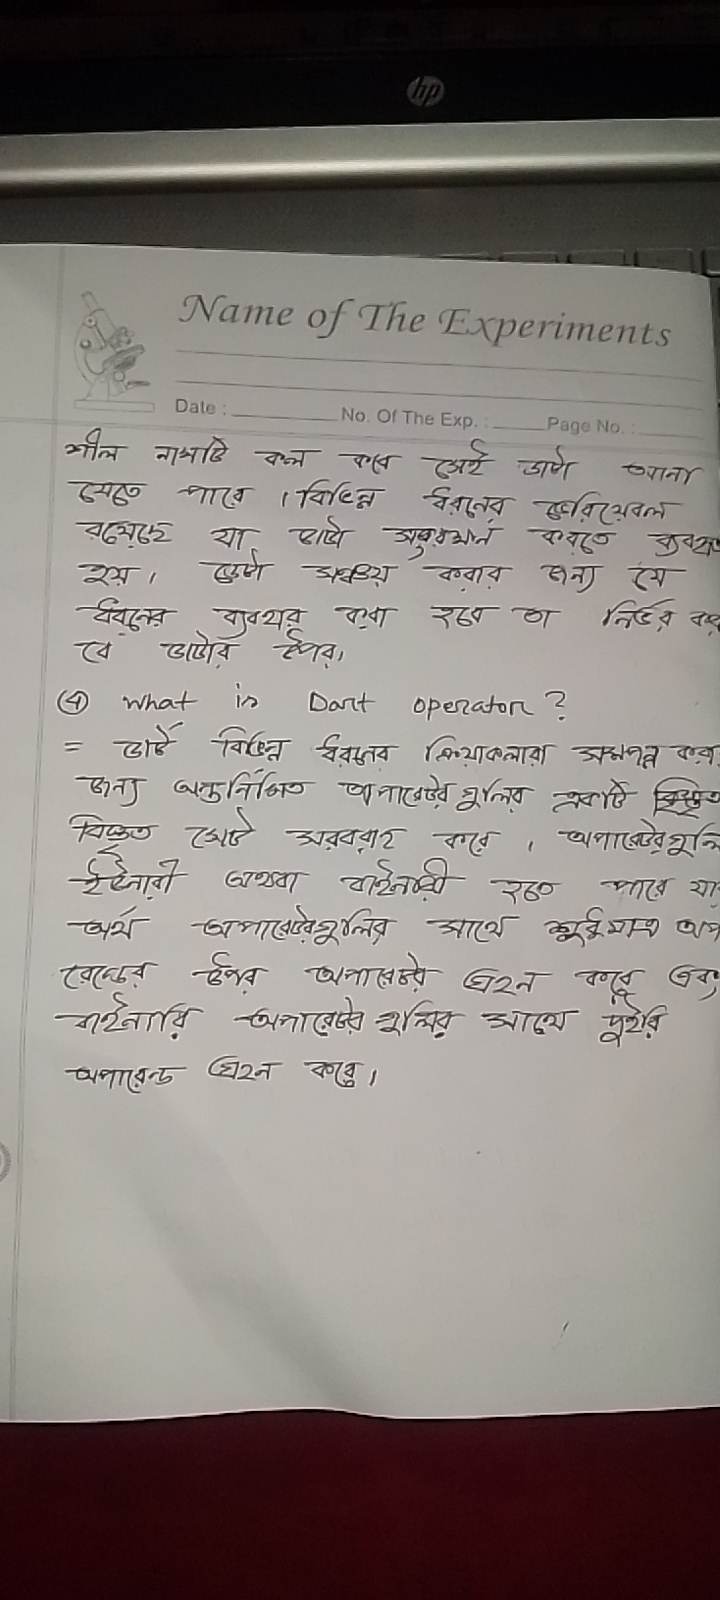 hp
Name of The Experiments
Date : No. Of The Exp. : Page No. :
শীল নামটি কল করে সেই ডাটা আনা
যেতে পারে । বিভিন্ন ধরনের ভেরিয়েবল
রয়েছে যা ডাটা করতে ব্যবহৃত
হয়। ডেটা সঞ্চয় করার জন্য যে
ধরনের ব্যবহার করা হবে তা নির্ভর কর
বে ডাটার উপর।
④ What is Dart operator ?
= ডার্ট বিভিন্ন ধরনের ক্রিয়াকলারা সমপন্ন করা
জন্য অন্তর্নির্মিত অপারেটর গুলির একটি
বিস্তৃত সেট সরবরাহ করে । অপারেটরগুলি
ইউনারী অথবা বাইনারী হতে পারে যা
অর্থ অপারেটরগুলির সাথে শুধুমাত্র অপ
রেন্ডের উপর অপারেটর গ্রহন করে এবং
বাইনারি অপারেটর গুলির সাথে দুইরি
অপারেন্ড গ্রহন করে।